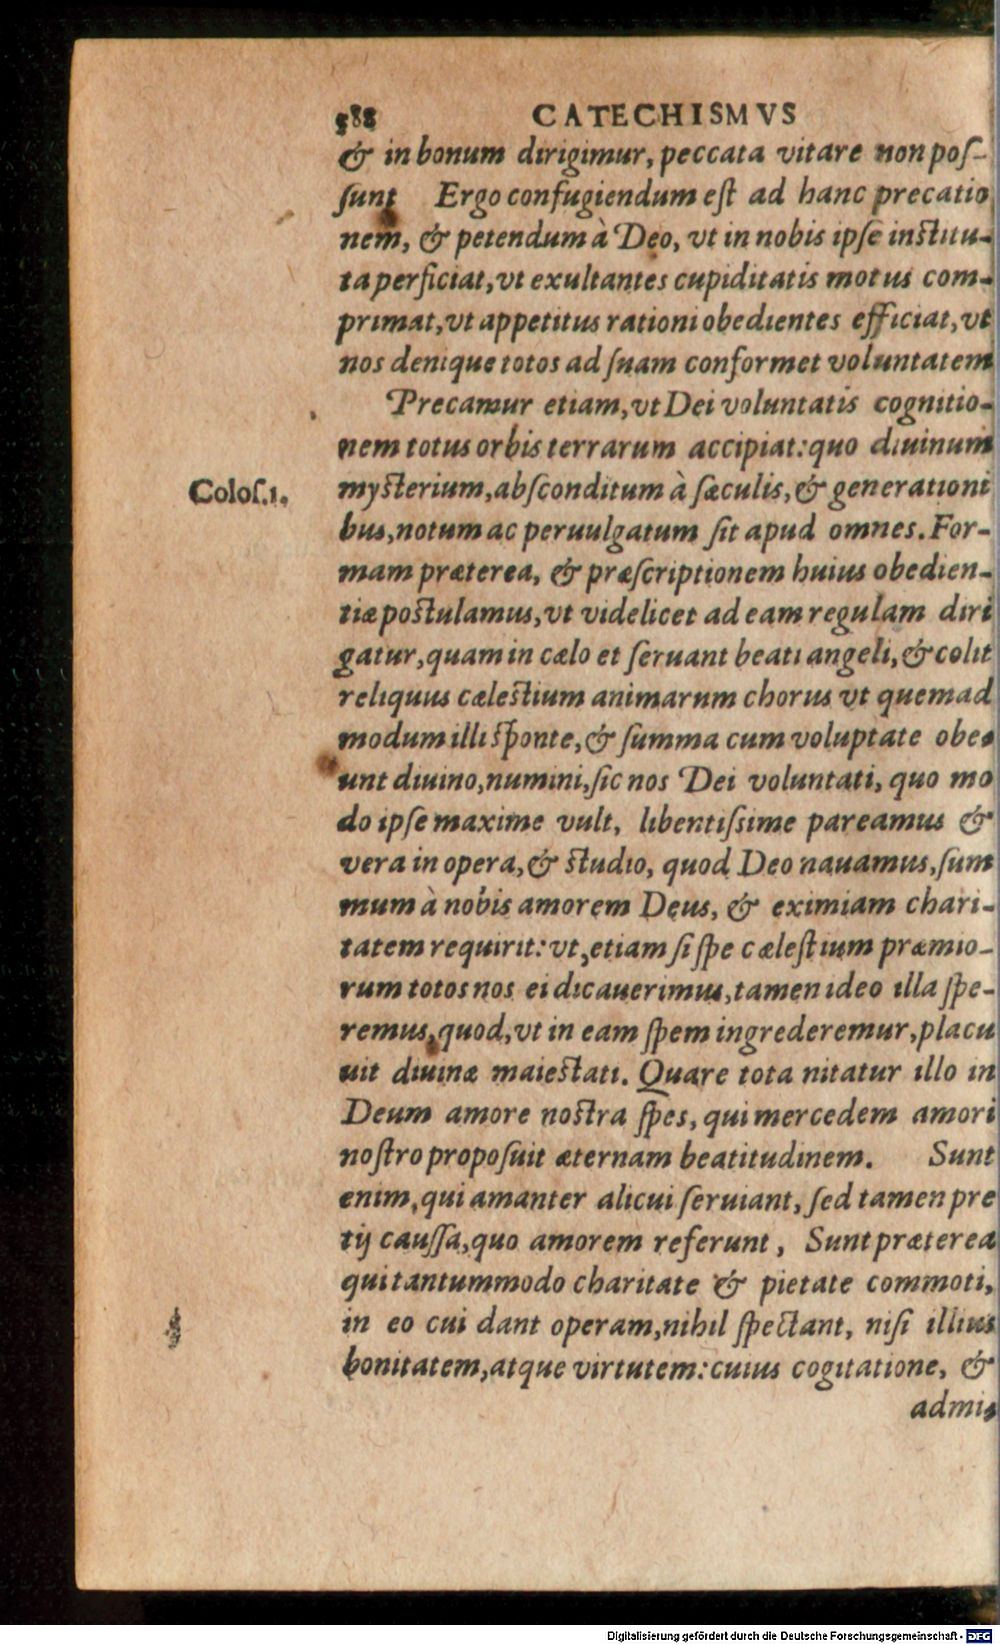 588 CATECHISMVS
& in bonum dirigimur, peccata vitare non pos-
sunt Ergo confugiendum est ad hanc precatio
nem, & petendum à Deo, vt in nobis ipse institu-
ta perficiat, vt exultantes cupiditatis motus com-
primat, vt appetitus rationi obedientes efficiat, vt
nos denique totos ad suam conformet voluntatem
Precamur etiam, vt Dei voluntatis cognitio-
nem totus orbis terrarum accipiat: quo diuinum
Colos.1. mysterium, absconditum à sæculis, & generationi
bus, notum ac peruulgatum sit apud omnes. For-
mam præterea, & præscriptionem huius obedien-
tiæ postulamus, vt videlicet ad eam regulam diri
gatur, quam in cælo et seruant beati angeli, & colit
reliquus cælestium animarum chorus vt quemad
modum illi sponte, & summa cum voluptate obe-
unt diuino, numini, sic nos Dei voluntati, quo mo
do ipse maxime vult, libentissime pareamus &
vera in opera, & studio, quod Deo nauamus, sum
mum à nobis amorem Deus, & eximiam chari-
tatem requirit: vt, etiam si spe cælestium præmio-
rum totos nos ei dicauerimus, tamen ideo illa spe-
remus, quod, vt in eam spem ingrederemur, placu
uit diuinæ maiestati. Quare tota nitatur illo in
Deum amore nostra spes, qui mercedem amori
nostro proposuit æternam beatitudinem. Sunt
enim, qui amanter alicui seruiant, sed tamen pre
tij caussa, quo amorem referunt, Sunt præterea
qui tantummodo charitate & pietate commoti,
in eo cui dant operam, nihil spectant, nisi illius
bonitatem, atque virtutem: cuius cogitatione, &
admi-
Digitalisierung gefördert durch die Deutsche Forschungsgemeinschaft - DFG